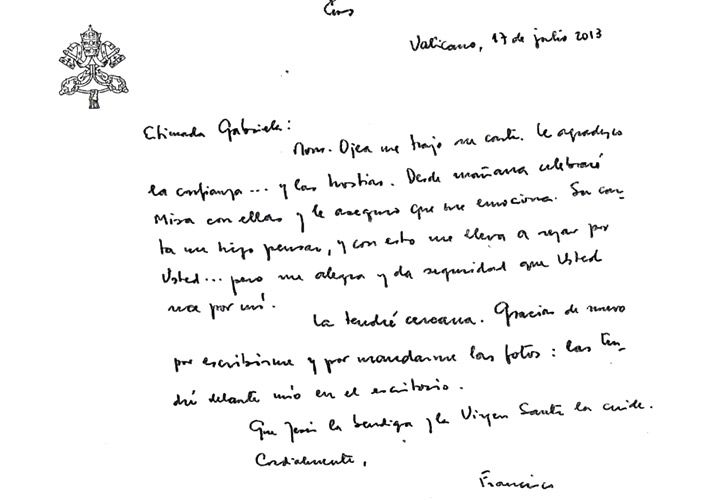 Vaticano, 17 de julio 2013
Estimada Gabriela:
Mons. Ojea me trajo su carta. Le agradezco
la confianza... y las hostias. Desde mañana celebraré
Misa con ellas y le aseguro que me emociona. Su car-
ta me hizo pensar, y con esto me lleva a rezar por
Usted... pero me alegra y da seguridad que Usted
rece por mí.
La tendré cercana. Gracias de nuevo
por escribirme y por mandarme las fotos: las ten-
dré delante mío en el escritorio.
Que Jesús la bendiga y la Virgen Santa la cuide.
Cordialmente,
Francisco